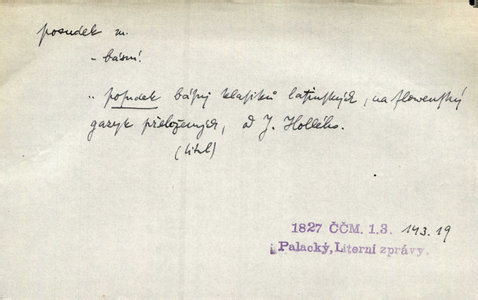 posudek m.
- básní
.. posudek básnj klasiků latinských, na slowenský
gazyk přeložených, od J. Hollého.
(titul)
1827 ČČM. 1.3. 143.19
Palacký, Literní zprávy.